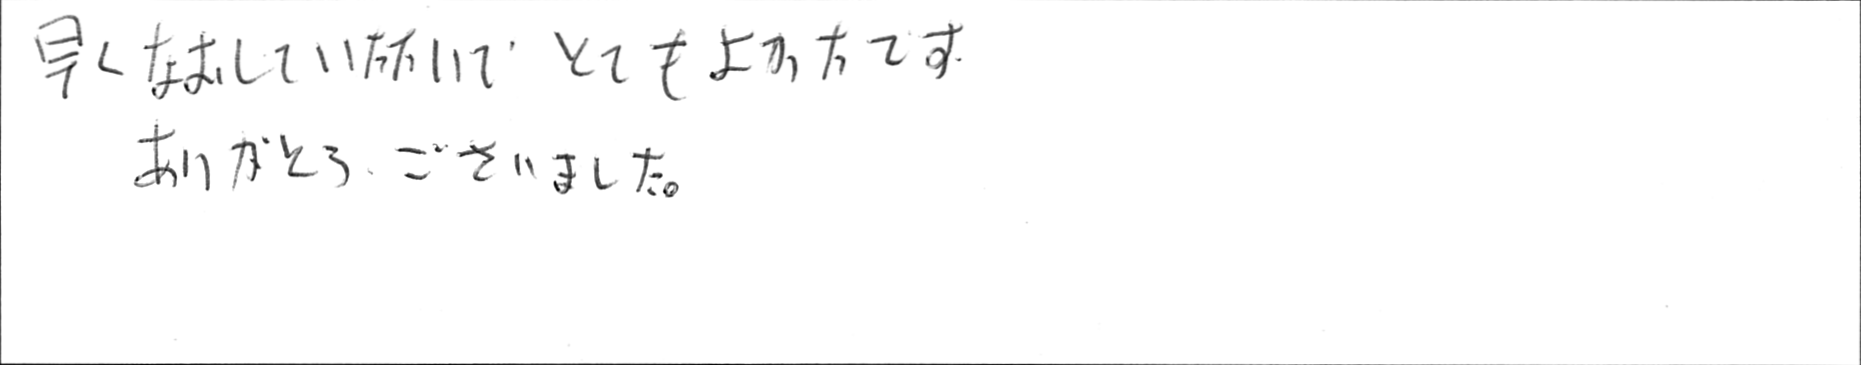 早くなおしていただいて、とてもよかったです
ありがとう、ございました。